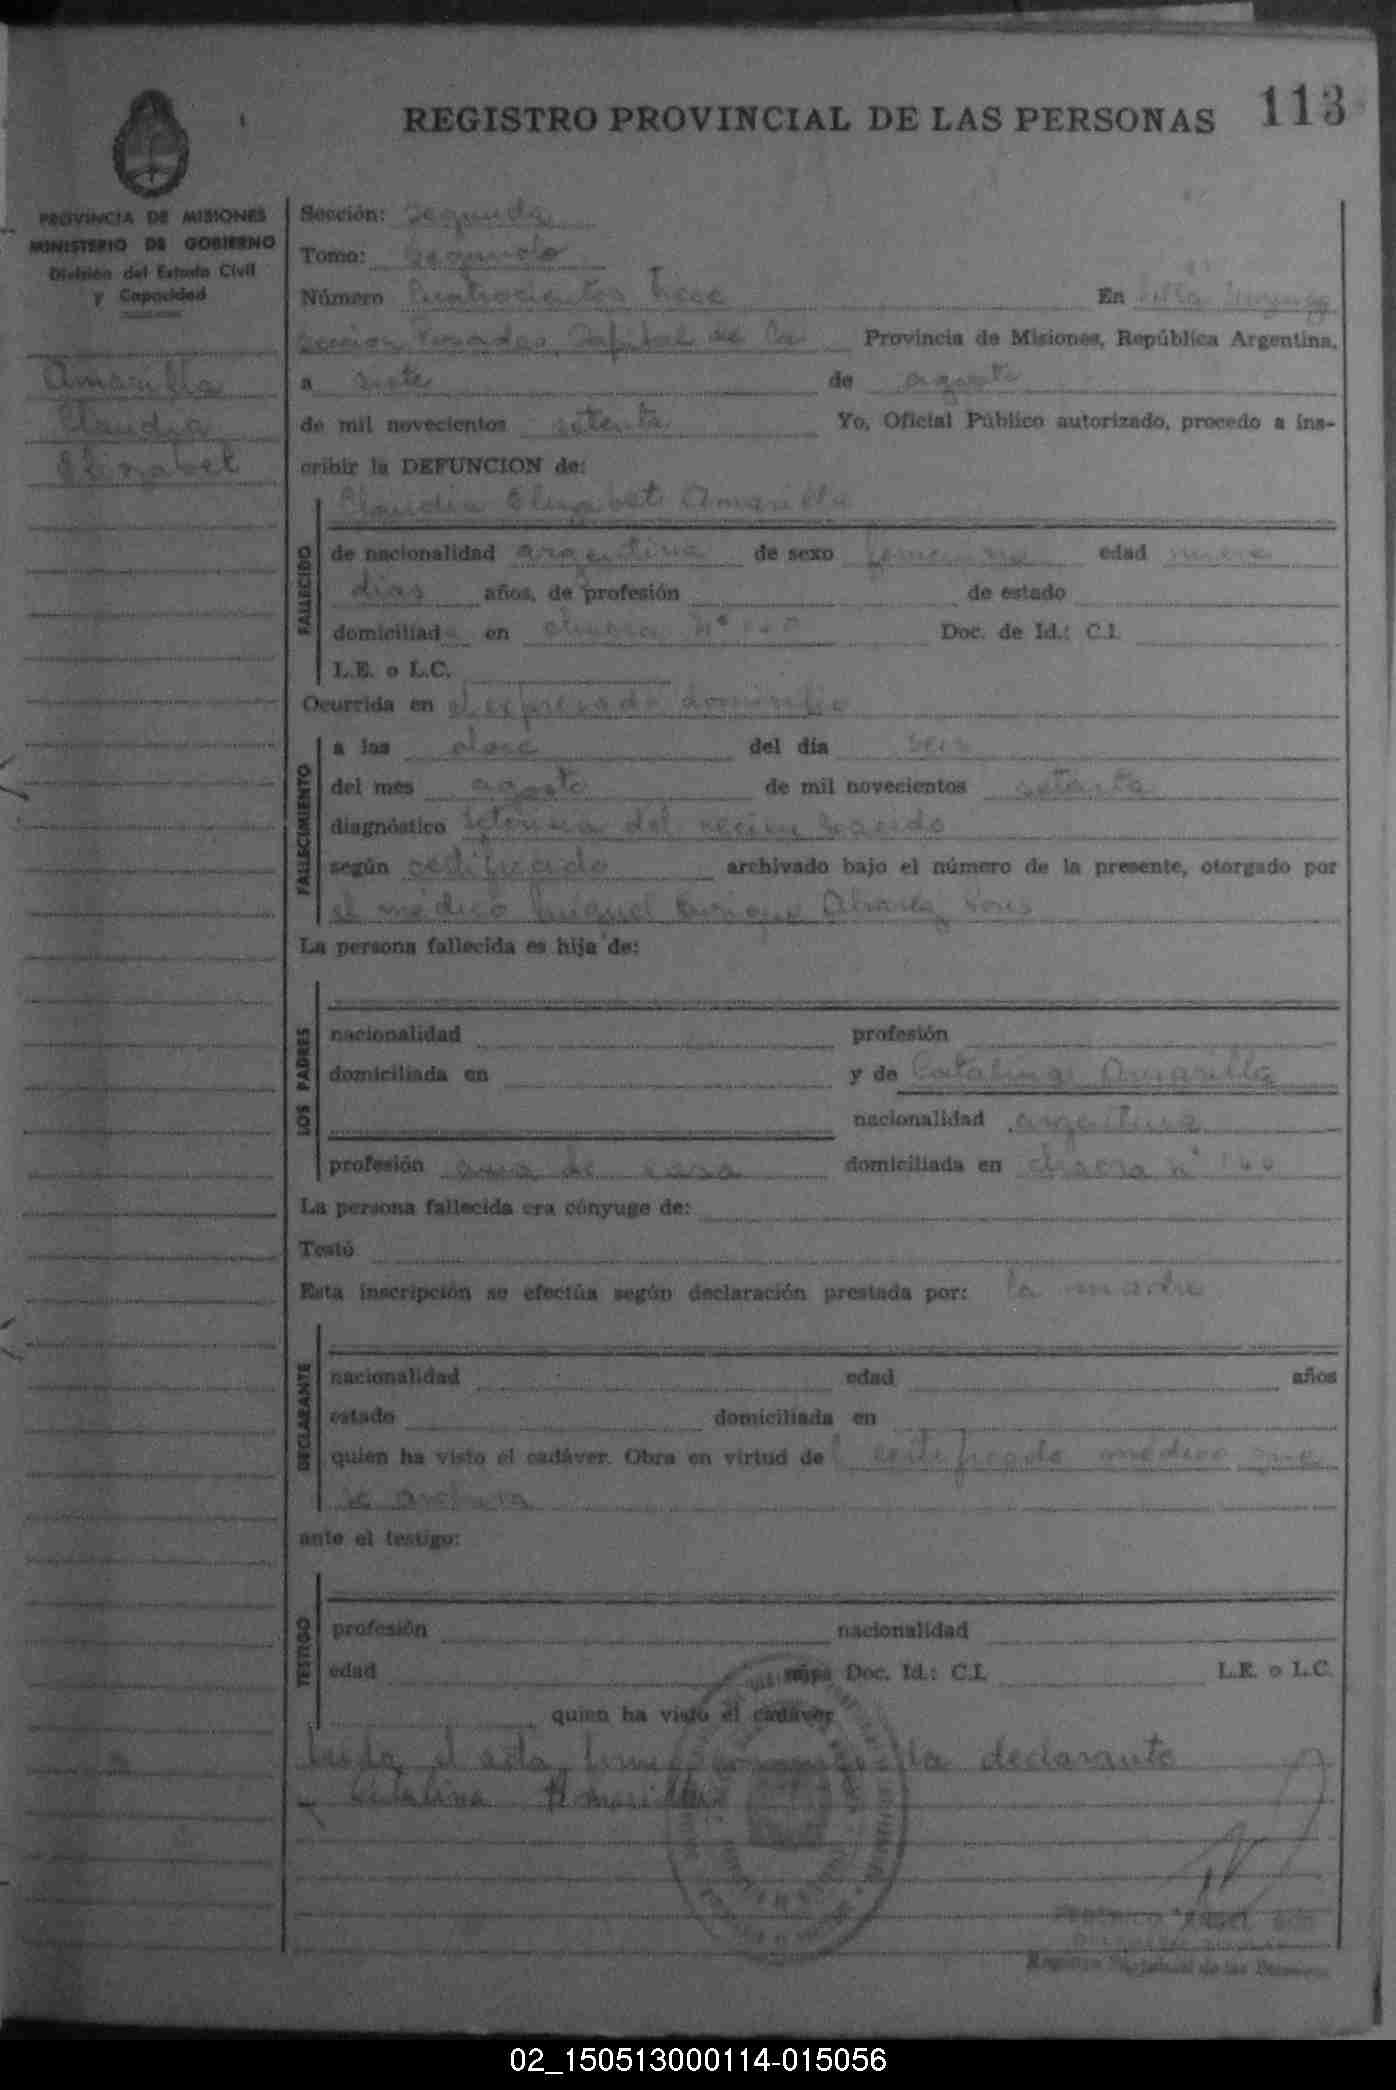 REGISTRO PROVINCIAL DE LAS PERSONAS 113
PROVINCIA DE MISIONES
MINISTERIO DE GOBIERNO
División del Estado Civil
y Capacidad
Amarilla
Claudia
Elizabet
Sección: Segunda
Tomo: Segundo
Número Cuatrocientos trece En Villa Urquiza
Sección Posadas Capital de la Provincia de Misiones, República Argentina,
a siete de agosto
de mil novecientos setenta Yo, Oficial Público autorizado, procedo a ins-
cribir la DEFUNCION de:
Claudia Elizabet Amarilla
FALLECIDO
de nacionalidad argentina de sexo femenino edad nueve
dias años, de profesión de estado
domiciliada en chacra Nº Doc. de Id.: C.I.
L.E. o L.C.
Ocurrida en el expresado domicilio
FALLECIMIENTO
a las doce del día seis
del mes agosto de mil novecientos setenta
diagnóstico del recien nacido
según certificado archivado bajo el número de la presente, otorgado por
el médico Miguel Enrique Alvarez
La persona fallecida es hija de:
LOS PADRES
nacionalidad profesión
domiciliada en y de Catalina Amarilla
nacionalidad argentina
profesión ama de casa domiciliada en chacra Nº
La persona fallecida era cónyuge de:
Testó
Esta inscripción se efectúa según declaración prestada por: la madre
DECLARANTE
nacionalidad edad años
estado domiciliada en
quien ha visto el cadáver. Obra en virtud del certificado médico que
se archiva
ante el testigo:
TESTIGO
profesión nacionalidad
edad años Doc. Id.: C.I. L.E. o L.C.
quien ha visto el cadáver
Leida el acta la declarante
Catalina Amarilla
Registro Provincial de las Personas
02_150513000114-015056